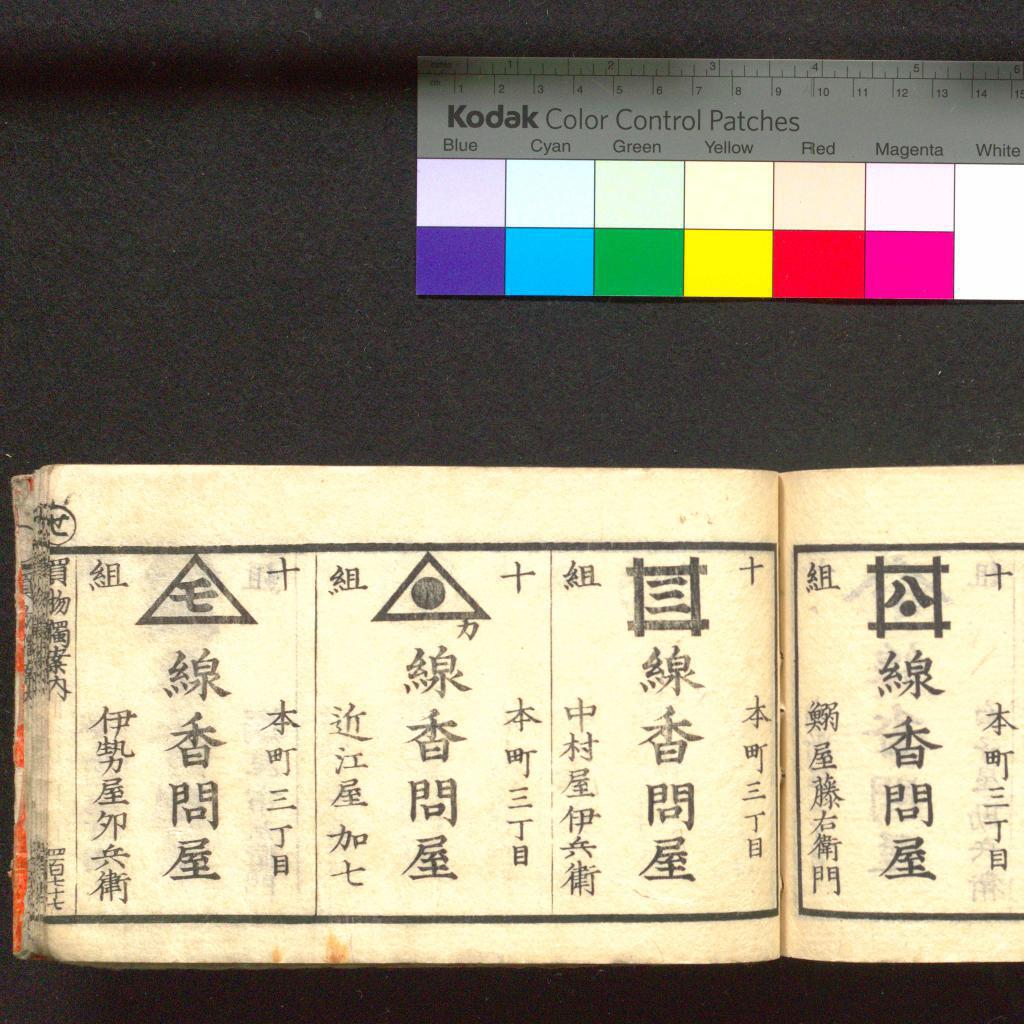 1 2 3 4 5 6
cm 1 2 3 4 5 6 7 8 9 10 11 12 13 14 15
Kodak Color Control Patches
Blue Cyan Green Yellow Red Magenta White
十組
公
本町三丁目
線香問屋
鰯屋藤右衛門
十組
三
本町三丁目
線香問屋
中村屋伊兵衛
十組
カ
本町三丁目
線香問屋
近江屋加七
十組
モ
本町三丁目
線香問屋
伊勢屋卯兵衛
世
買物獨案内
四百七十七